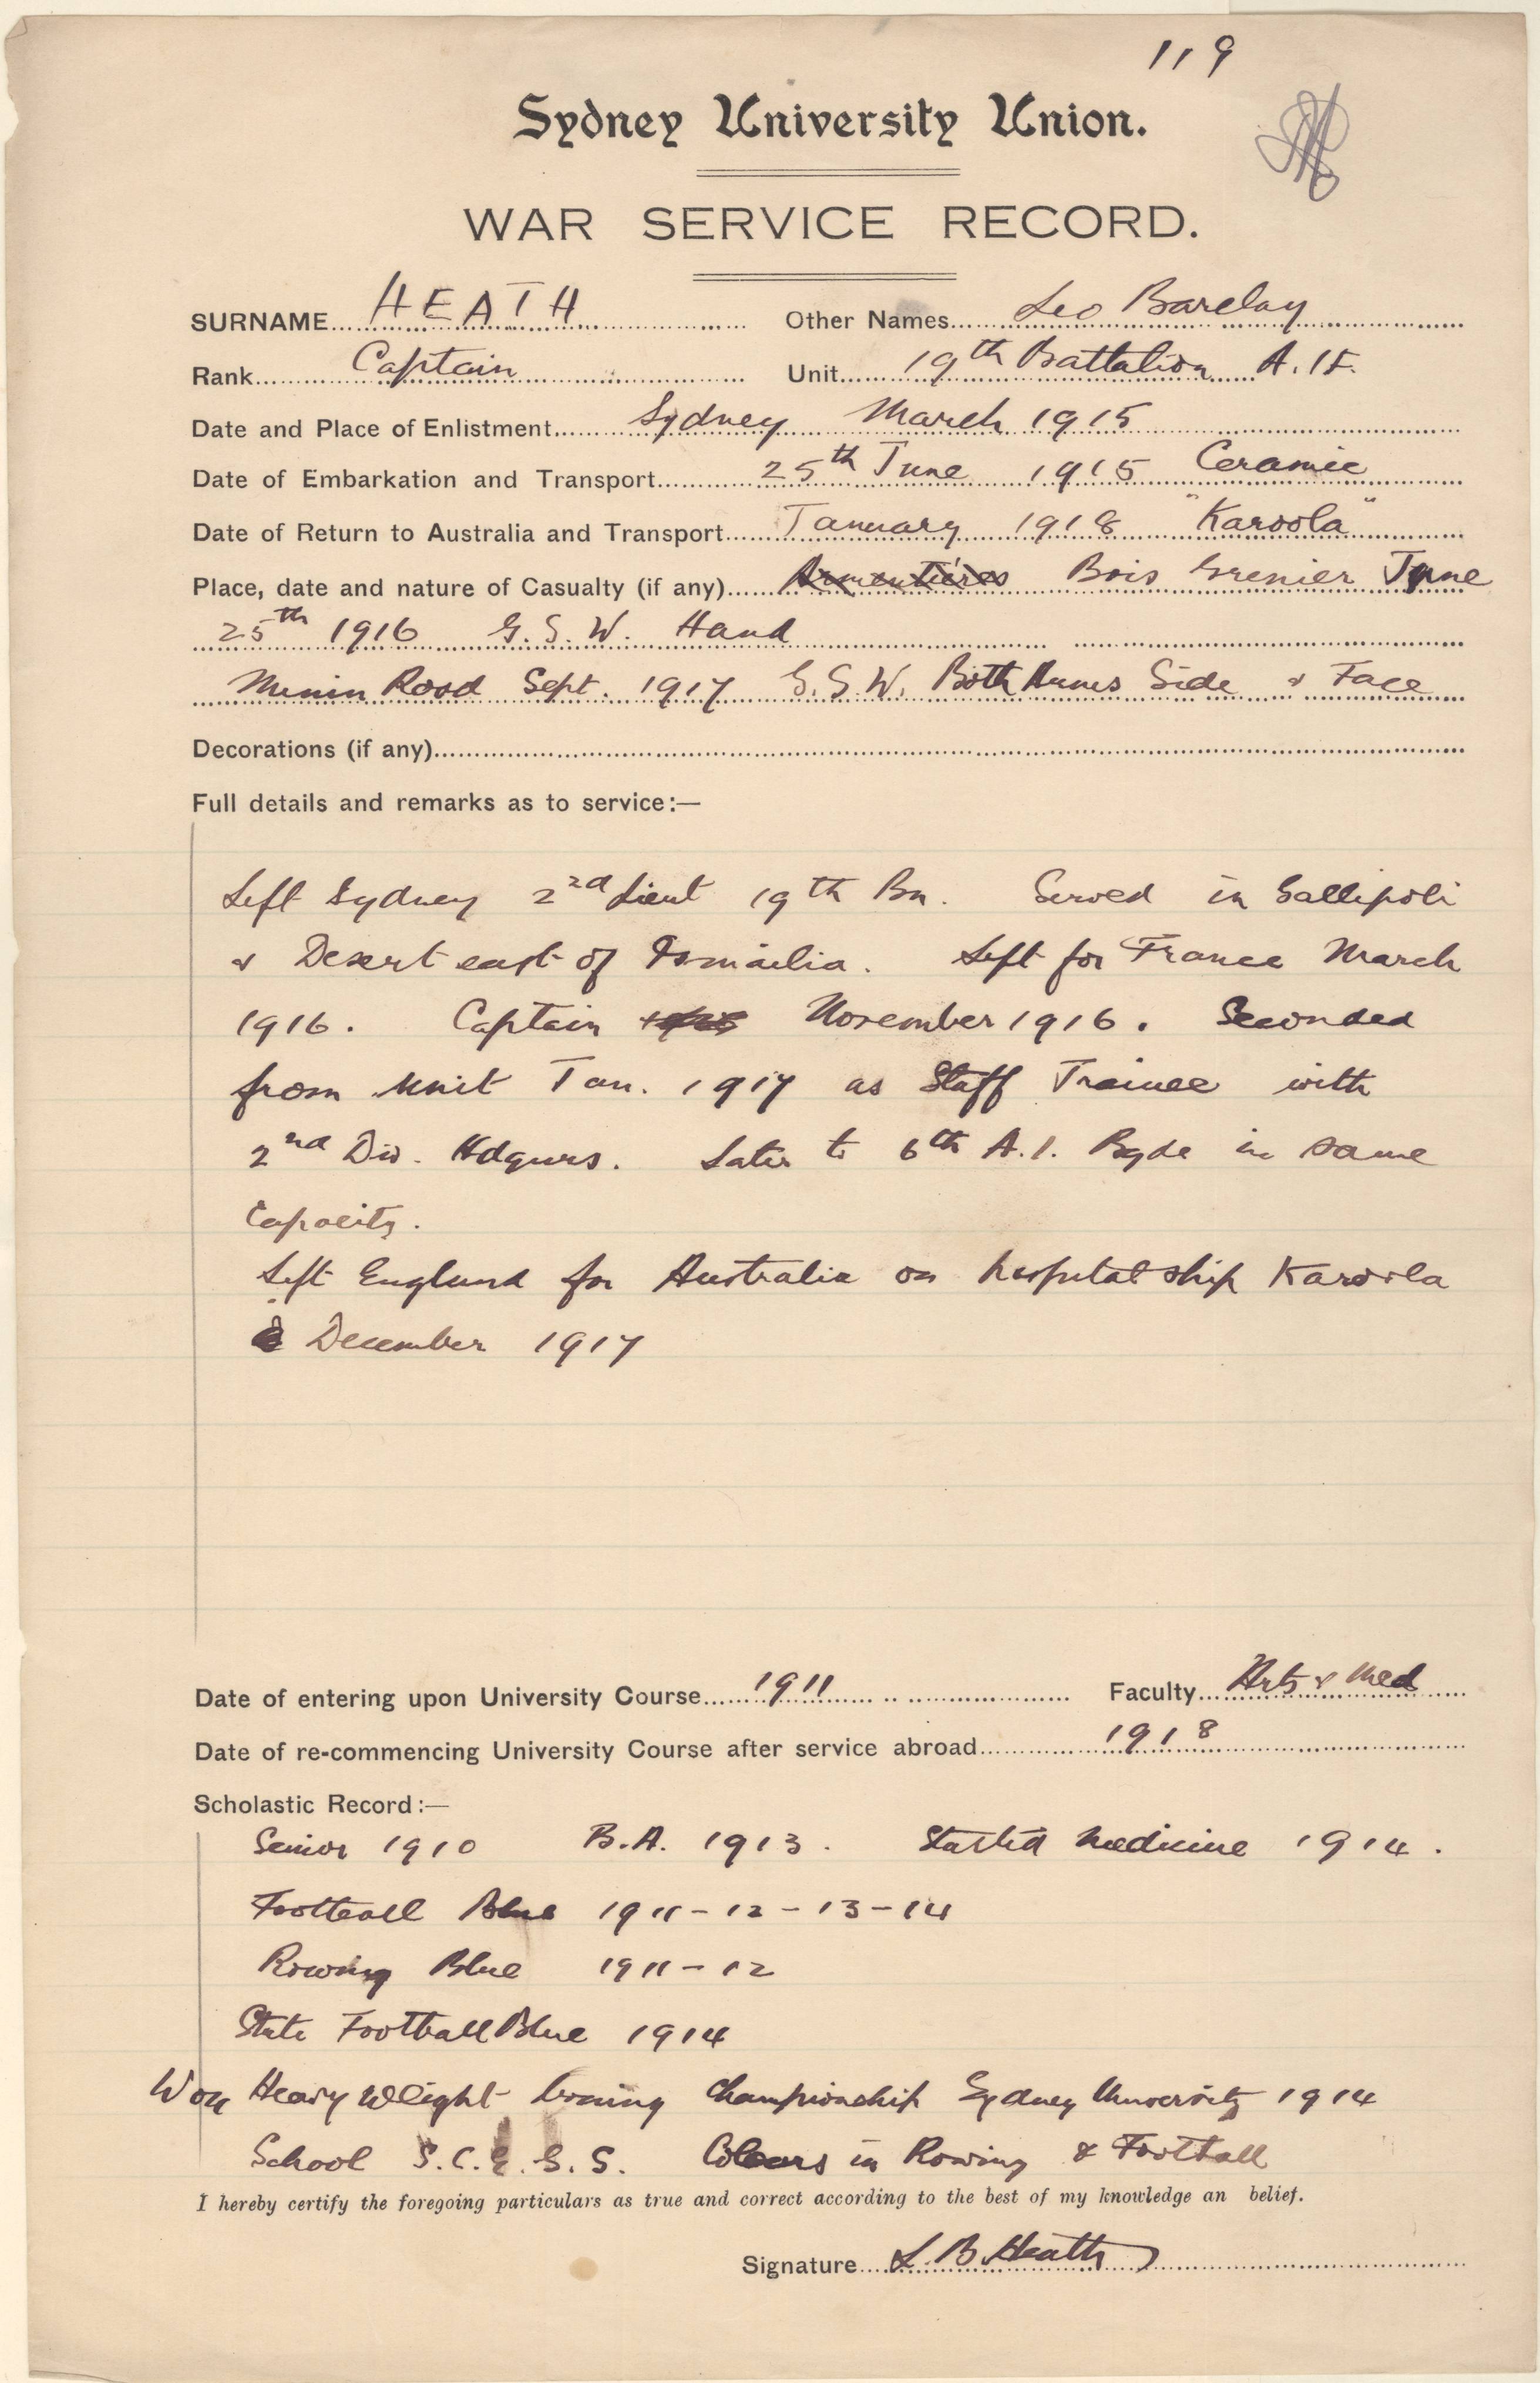 119
Sydney University Union.
WAR SERVICE RECORD.
SURNAME HEATH Other Names Leo Barclay
Rank Captain Unit 19th Battalion A.I.F.
Date and Place of Enlistment Sydney March 1915
Date of Embarkation and Transport 25th June 1915 Ceramic
Date of Return to Australia and Transport January 1918 "Karoola"
Place, date and nature of Casualty (if any) Armentières Bois Grenier June
25th 1916 G.S.W. Hand
Menin Road Sept. 1917 G.S.W. Both Arms Side & Face
Decorations (if any)
Full details and remarks as to service:—
Left Sydney 2nd Lieut 19th Bn. Served in Gallipoli
& Desert east of Ismailia. Left for France March
1916. Captain November 1916. Seconded
from Unit Jan. 1917 as Staff Trainee with
2nd Div. Hdqurs. Later to 6th A.I. Bgde in same
Capacity.
Left England for Australia on hospital ship Karoola
December 1917
Date of entering upon University Course 1911 Faculty Arts & Med
Date of re-commencing University Course after service abroad 1918
Scholastic Record:—
Senior 1910 B.A. 1913. Started Medicine 1914.
Football Blue 1911-12-13-14
Rowing Blue 1911-12
State Football Blue 1914
Won Heavy Weight boxing Championship Sydney University 1914
School S.C.E.G.S. Colours in Rowing & Football
I hereby certify the foregoing particulars as true and correct according to the best of my knowledge an belief.
Signature L. B. Heath